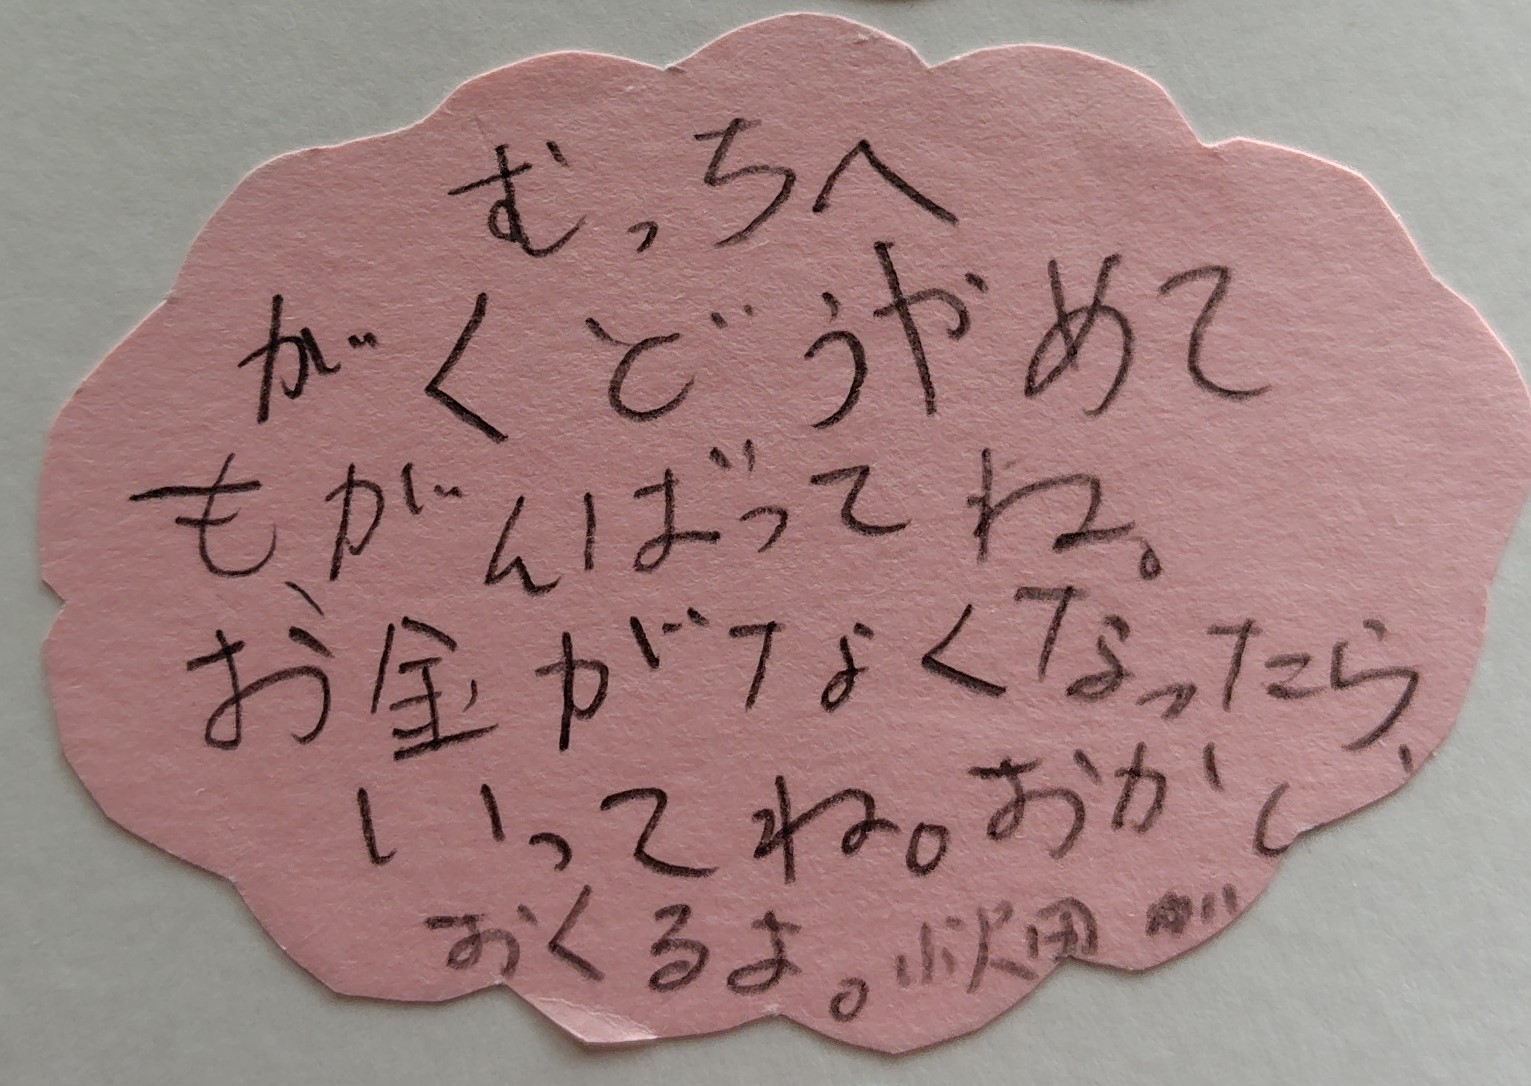 むっちへ
がくどうやめて
もがんばってね。
お金がなくなったら、
いってね。おかし
おくるよ。